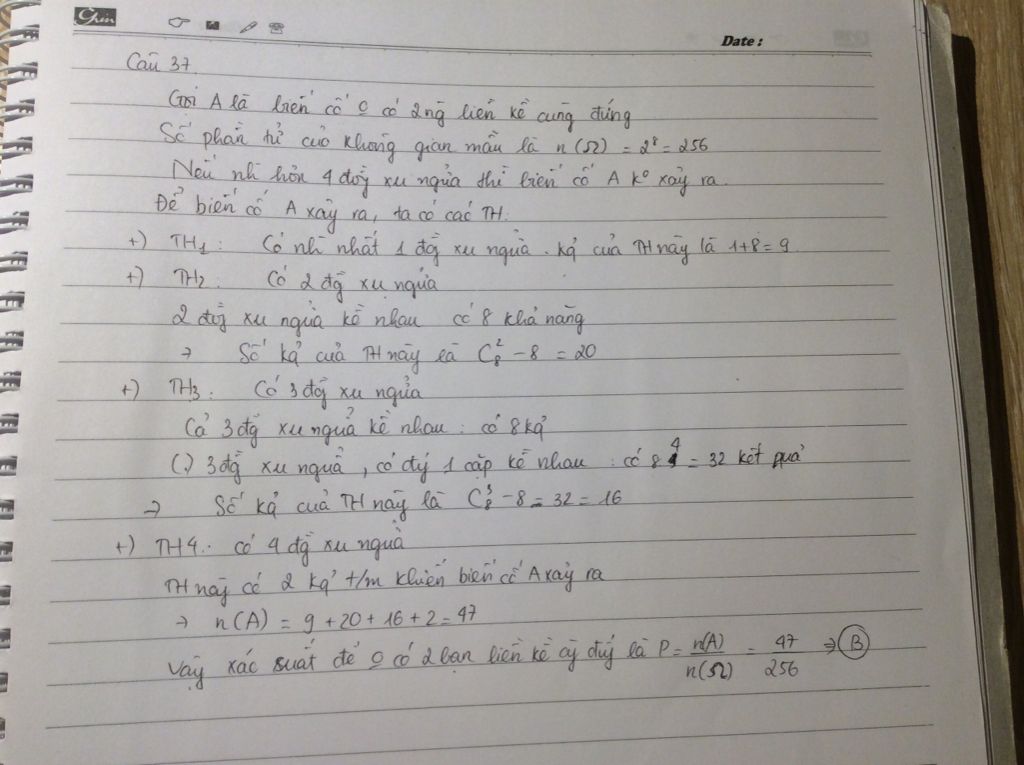 Grin
Date :
Câu 37.
Gọi A là biến cố O có 2 ng liền kề cùng đứng
Số phần tử của không gian mẫu là n(Ω) = 2⁸ = 256
Nếu nh hơn 4 đồg xu ngửa thì biến cố A kº xảy ra.
Để biến cố A xảy ra, ta có các TH:
+) TH1: Có nh nhất 1 đồg xu ngửa. kq của TH này là 1+8 = 9.
+) TH2: Có 2 đg xu ngửa
2 đồg xu ngửa kề nhau có 8 khả năng
→ Số kq của TH này là C₈² - 8 = 20
+) TH3: Có 3 đg xu ngửa
Cả 3 đg xu ngửa kề nhau: có 8 kq
(.) 3 đg xu ngửa, có đý 1 cặp kề nhau: có 8 4 = 32 kết quả
→ Số kq của TH này là C₈³ - 8 - 32 = 16
+) TH4: có 4 đg xu ngửa
TH này có 2 kq t/m khiến biến cố A xảy ra
→ n(A) = 9 + 20 + 16 + 2 = 47
Vậy xác suất để O có 2 bạn liền kề cg đứg là P = n(A)/n(Ω) = 47/256 ⇒ B